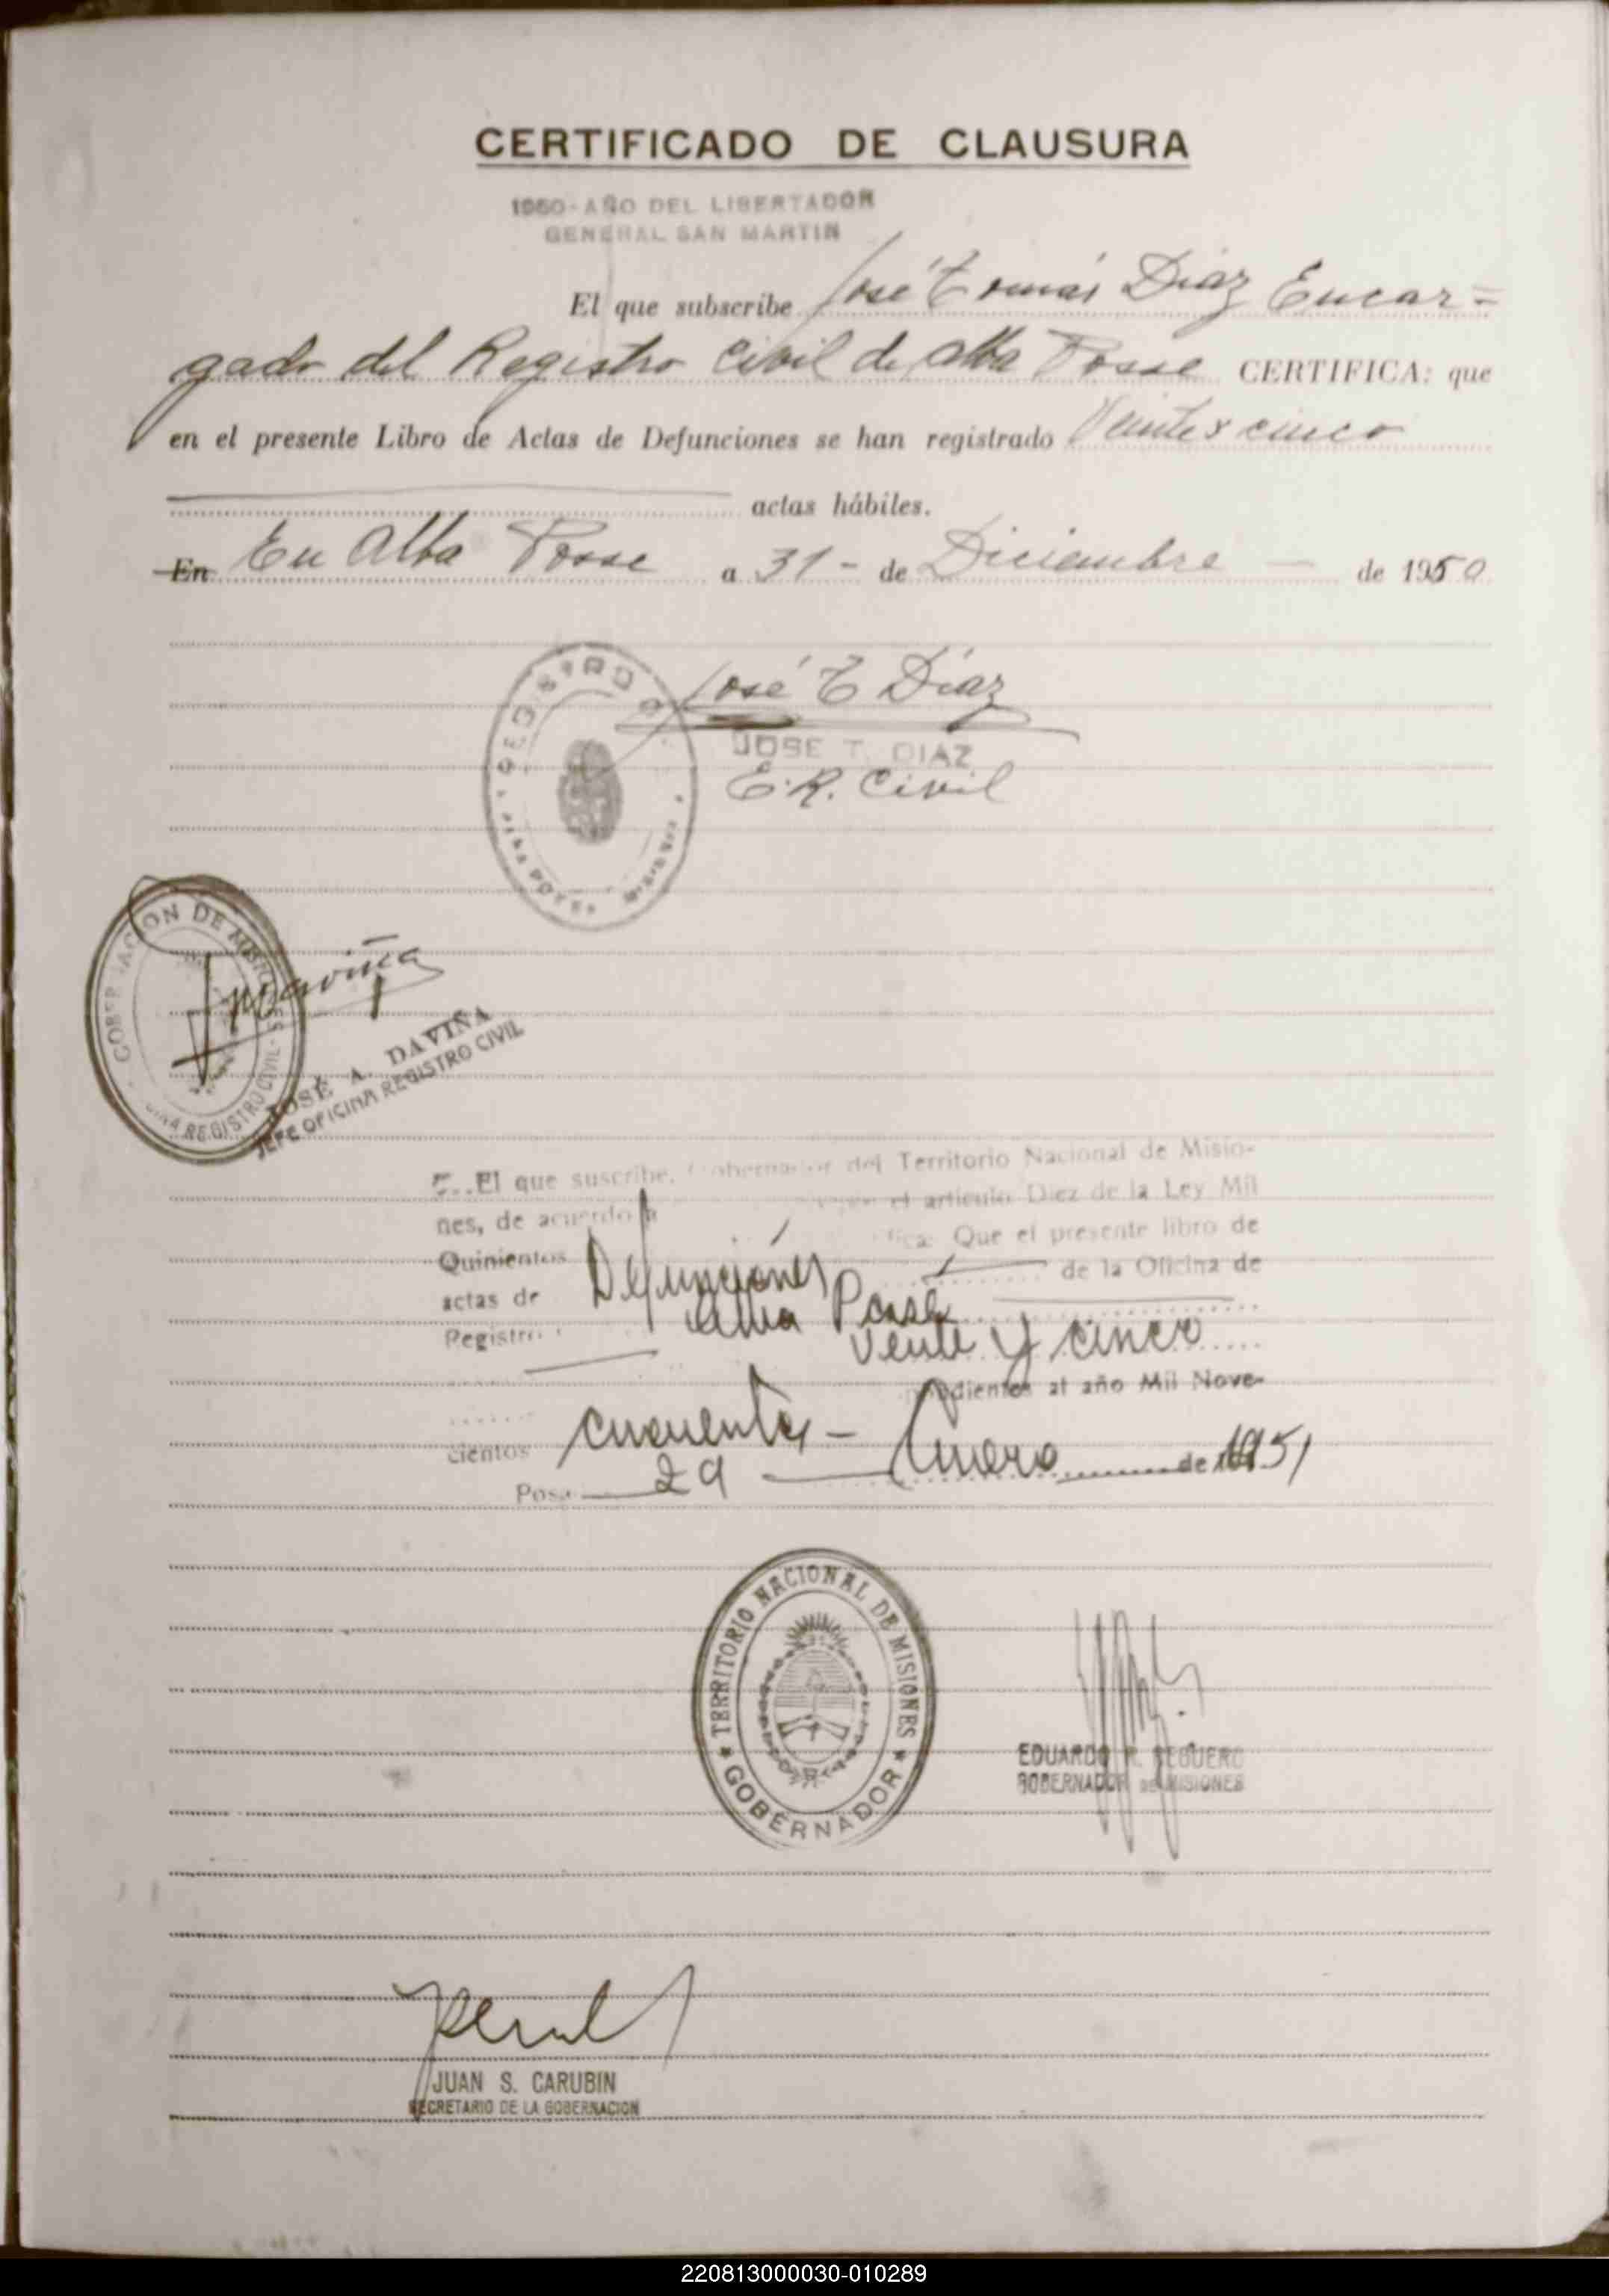 CERTIFICADO DE CLAUSURA
1950-AÑO DEL LIBERTADOR
GENERAL SAN MARTIN
El que subscribe José Tomás Díaz Encar=
gado del Registro Civil de Alba Posse CERTIFICA: que
en el presente Libro de Actas de Defunciones se han registrado Veinte y cinco
actas hábiles.
En En Alba Posse a 31 - de Diciembre — de 1950
REGISTRO
José T Díaz
JOSE T. DIAZ
E. R. Civil
ALBA POSSE MISIONES
GOBERNACION DE MISIONES
REGISTRO CIVIL
Daviña
JOSÉ A. DAVIÑA
JEFE OFICINA REGISTRO CIVIL
El que suscribe, Gobernador del Territorio Nacional de Misio-
nes, de acuerdo a el artículo Diez de la Ley Mil
Quinientos Que el presente libro de
actas de Defunciones de la Oficina de
Registro Alba Posse
Veinte y cinco
al año Mil Nove-
cientos cincuenta —
Posa 29 — Enero de 1951
TERRITORIO NACIONAL DE MISIONES
GOBERNADOR
EDUARDO R. REGUERO
GOBERNADOR DE MISIONES
JUAN S. CARUBIN
SECRETARIO DE LA GOBERNACION
220813000030-010289